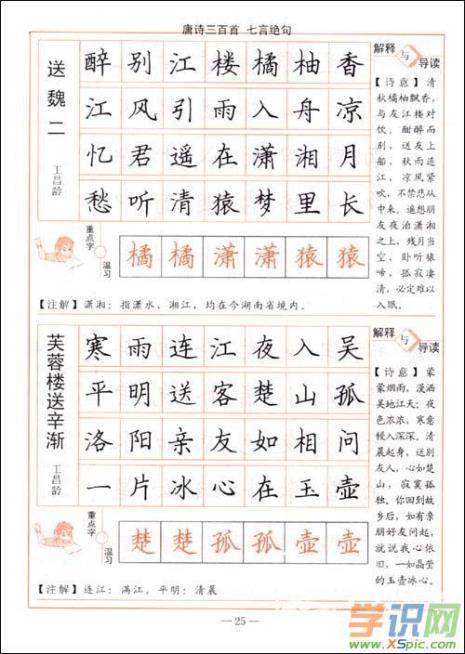 唐诗三百首 七言绝句
送魏二
王昌龄
醉别江楼橘柚香
江风引雨入舟凉
忆君遥在潇湘月
愁听清猿梦里长
重点字
温习
橘橘潇潇猿猿
【注解】潇湘：指潇水、湘江，均在今湖南省境内。
解释与导读
【诗意】清
秋橘柚飘香，
与友江楼对
饮，酣醉而
别，送友上
船，秋雨连
江，凉风紧
吹，不禁悲从
中来。遥想朋
友夜泊潇湘
之上，残月当
空，卧听猿
啼，孤寂凄
清，必定难以
入眠。
芙蓉楼送辛渐
王昌龄
寒雨连江夜入吴
平明送客楚山孤
洛阳亲友如相问
一片冰心在玉壶
重点字
温习
楚楚孤孤壶壶
【注解】连江：满江，平明：清晨
解释与导读
【诗意】蒙
蒙烟雨，漫洒
吴地江天；夜
色浓浓，寒意
侵入深深。清
晨起身，送别
友人，心如楚
山，寂寞孤
独。你回到故
乡后，如有亲
朋好友问起，
就说我心依
旧，一如晶莹
的玉壶冰心。
— 25 —
学识网
www.XSpic.com